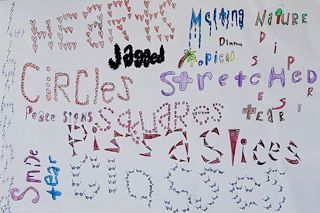 HEARTS
Melting
NATURE
Jagged
Tropical
DISAPPEAR
CircLes
STRETCHED
Peace signs
SQuares
tear
Pizza Slices
Smile
tear